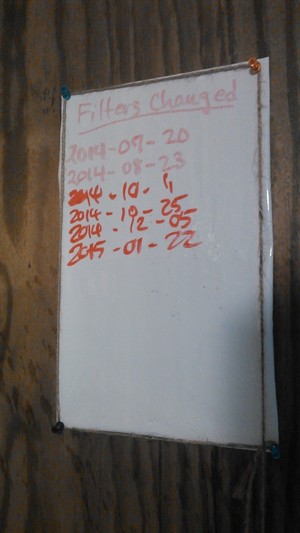 Filters Changed
2014-07-20
2014-08-23
2014-10-11
2014-10-25
2014-12-05
2015-01-22